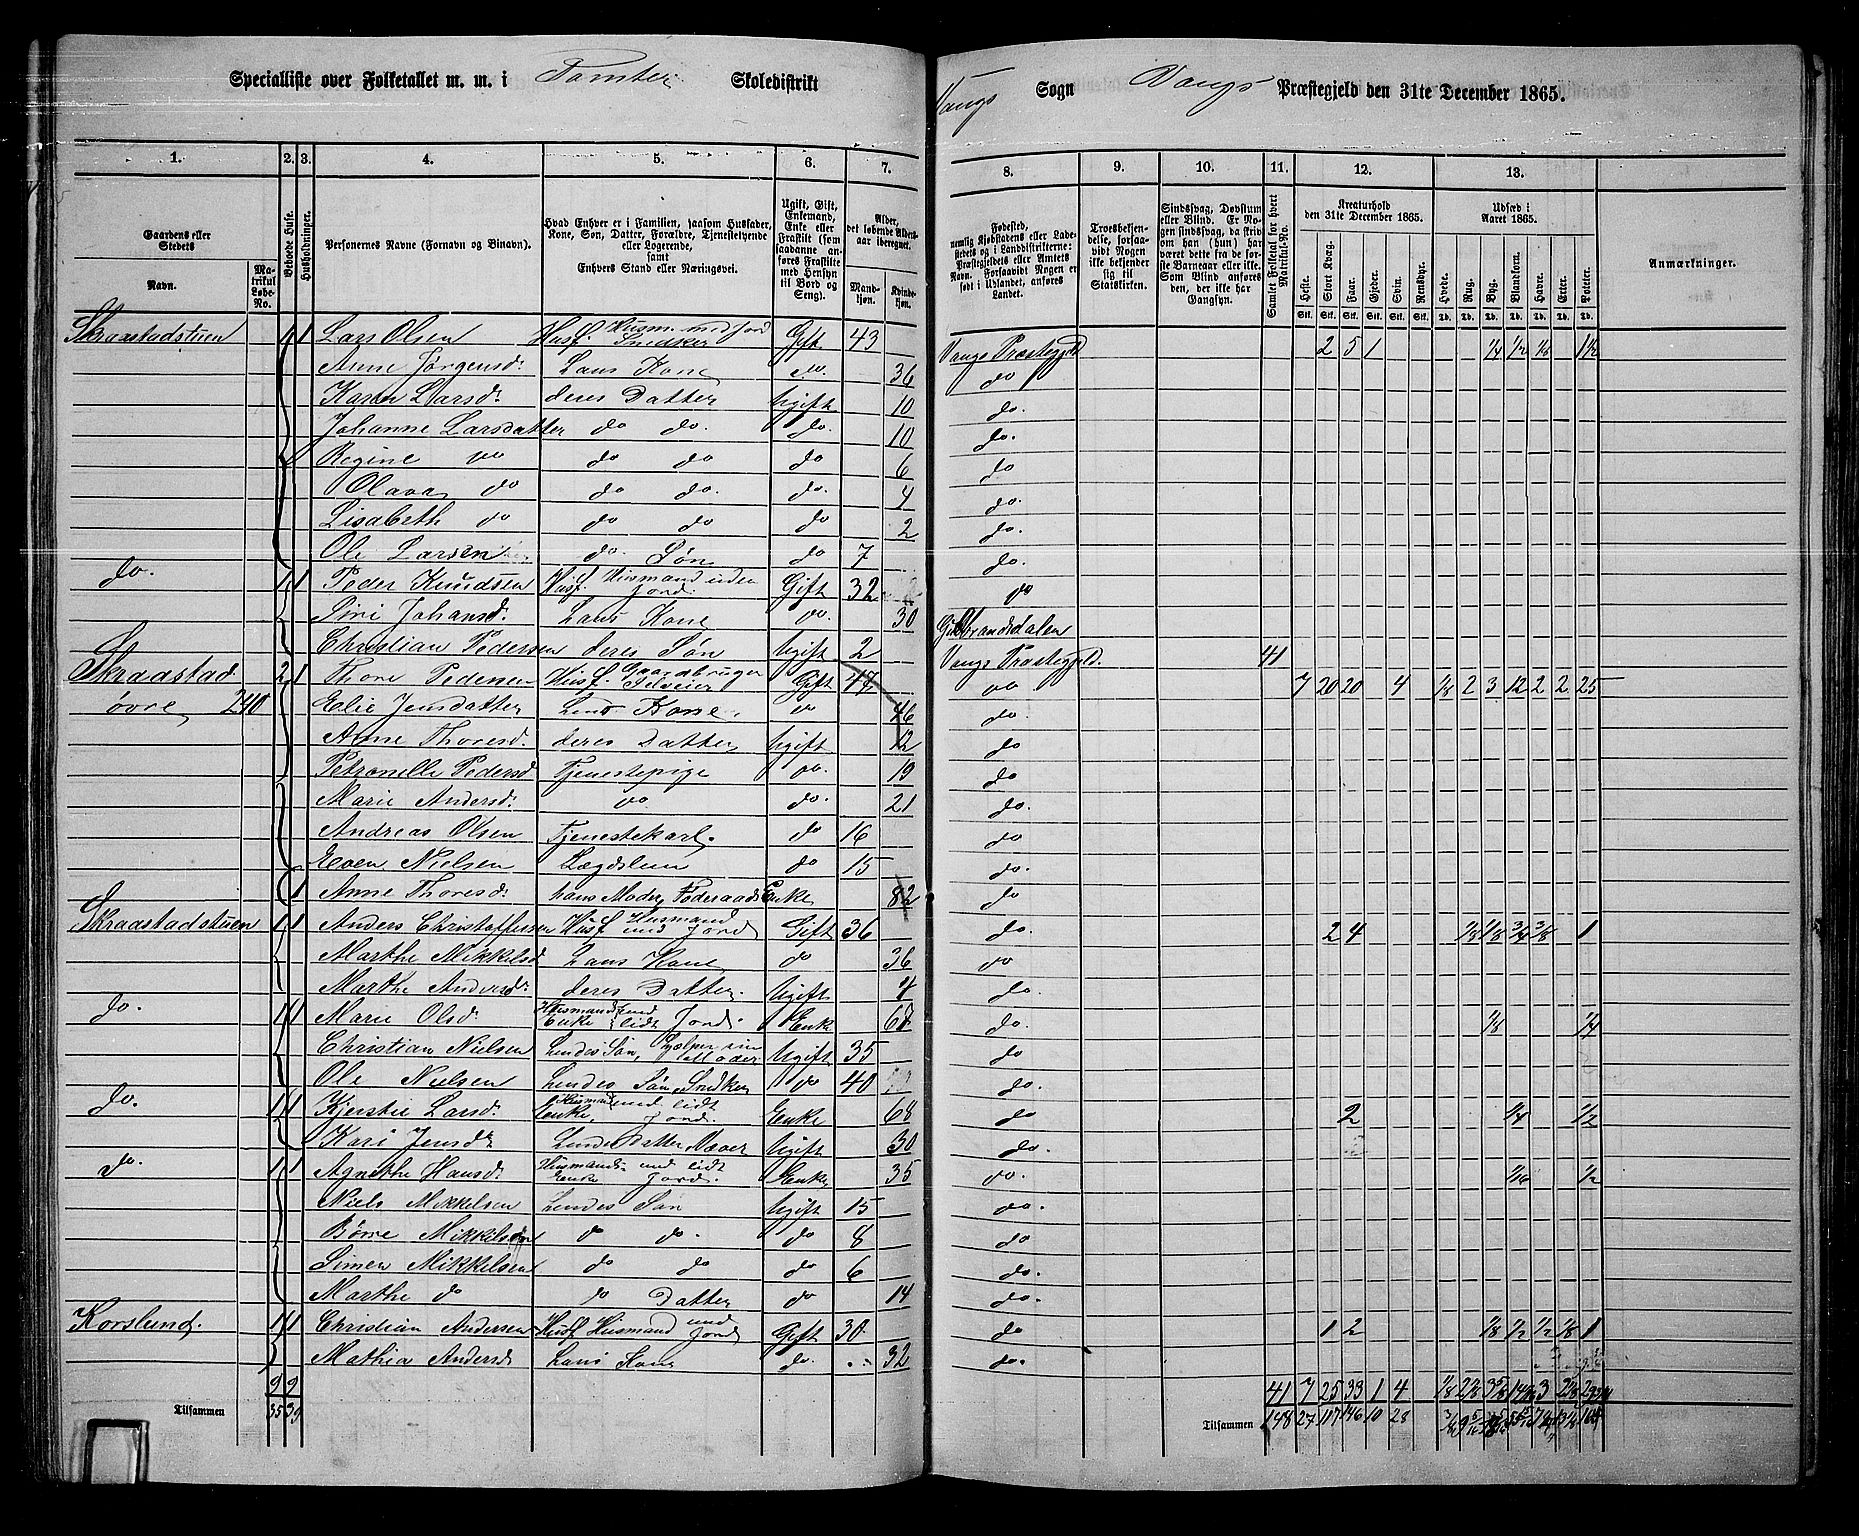 Specialliste over Folketallet m. m. i Tomter Skoledistrikt Vangs Sogn Vangs Præstegjeld den 31te December 1865.
1. 2. 3. 4. 5. 6. 7. 8. 9. 10. 11. 12. 13.
Gaardens eller Stedets
Navn.
Matrikul Løbe-No.
Beboede Huse.
Husholdninger.
Personernes Navne (Fornavn og Binavn).
Hvad Enhver er i Familien, saasom Husfader, Kone, Søn, Datter, Forældre, Tjenestetyende eller Logerende, samt Enhvers Stand eller Næringsvei.
Ugift, Gift, Enkemand, Enke eller Fraskilt (som saadanne anføres Fraskilte med Hensyn til Bord og Seng).
Alder, det løbende Aldersaar iberegnet.
Mandkjøn.
Kvindekjøn.
Fødested, nemlig Kjøbstadens eller Ladestedets og i Landdistrikterne: Præstegjeldets eller Amtets Navn. Forsaavidt Nogen er født i Udlandet, anføres Landet.
Troesbekjendelse, forsaavidt Nogen ikke bekjender sig til Statskirken.
Sindssvag, Døvstum eller Blind. Er Nogen sindssvag, da skriv om han (hun) har været dette fra de første Barneaar eller ikke. Som Blind anføres den, der ikke har Gangsyn.
Samlet Folketal for hvert Matrikul-No.
Kreaturhold den 31te December 1865.
Heste. Stort Kvæg. Faar. Gjeder. Svin. Rensdyr.
Stk. Stk. Stk. Stk. Stk. Stk.
Udsæd i Aaret 1865.
Hvede. Rug. Byg. Blandkorn. Havre. Erter. Poteter.
Td. Td. Td. Td. Td. Td. Td.
Anmærkninger.
Skraastadstuen 1 1 Lars Olsen Husf. Husm. med Jord Snedker Gift 43 Vangs Præstegjld 2 5 1 1/4 1/2 1/8 1 1/2
Anne Jørgensd. Hans Kone do. 36 do
Karen Larsd. deres Datter Ugift 10 do.
Johanne Larsdatter do do. do. 10 do.
Regine do do do do 6 do
Olava do do do. do. 4 do.
Lisabeth do do do do 2 do.
Ole Larsen do. Søn do 7 do.
do. 1 1 Peder Knudsen Husf. Husmand uden Jord Gift 32 do
Siri Johansd. Hans Kone do. 30 Gudbrandsdalen
Christian Pedersen deres Søn Ugift 2 Vangs Præstegjld. 41
Skraastad 2 1 Thore Pedersen Husf. Gaardbruger Selveier Gift 48 do. 7 20 20 4 1/8 2 3 12 2 2 25
øvre 240 Elie Jensdatter Hans Kone do 46 do.
Anne Thoresd. deres Datter Ugift 12 do
Petronelle Pedersd. Tjenestepige do. 19 do
Marie Andersd. do. do. 21 do.
Andreas Olsen Tjenestekarl. do 16 do
Even Nielsen Lægdslem do 15 do.
1 Anne Thoresd. hans Moder, Føderaads Enke 82 do
Skraastadstuen 1 1 Anders Christoffersen Husf. Husmand med Jord Gift 36 do. 2 4 1/8 1/8 3/4 3/8 1
Marthe Mikkelsd Hans Kone do 36 do
Marthe Andersd. deres Datter. Ugift 4 do.
do. 1 1 Marie Olsd. Husmands Enke med lidt Jord. Enke 67 do. 1/8 1/4
Christian Nielsen Hendes Søn, Hjælper sin Moder Ugift 35 do
Ole Nielsen Hendes Søn, Snedker do 40 do.
do. 1 1 Kjerstie Larsd. Husmands Enke, med lidt Jord. Enke 68 do 2 1/4 1/2
Kari Jensd. Hendes Datter, Væver Ugift 30 do.
do. 1 1 Agnethe Hansd. Husmands Enke med lidt Jord. Enke 35 do. 1/16 1/2
Niels Mikkelsen Hendes Søn Ugift 15 do.
Børre Mikkelsen do do. do 8 do
Simen Mikkelsen do do do 6 do.
Marthe do do Datter do 14 do.
Korslund. 1 1 Christian Andersen Husf. Husmand med Jord Gift 30. do 1 2 1/8 1/2 1/2 1/8 1
Mathia Andersd Hans Kone do. 32 do.
9 9 41 7 25 33 1 4 1/8 2 1/8 3
Tilsammen 35 39 Tilsammen 148 27 107 146 10 28